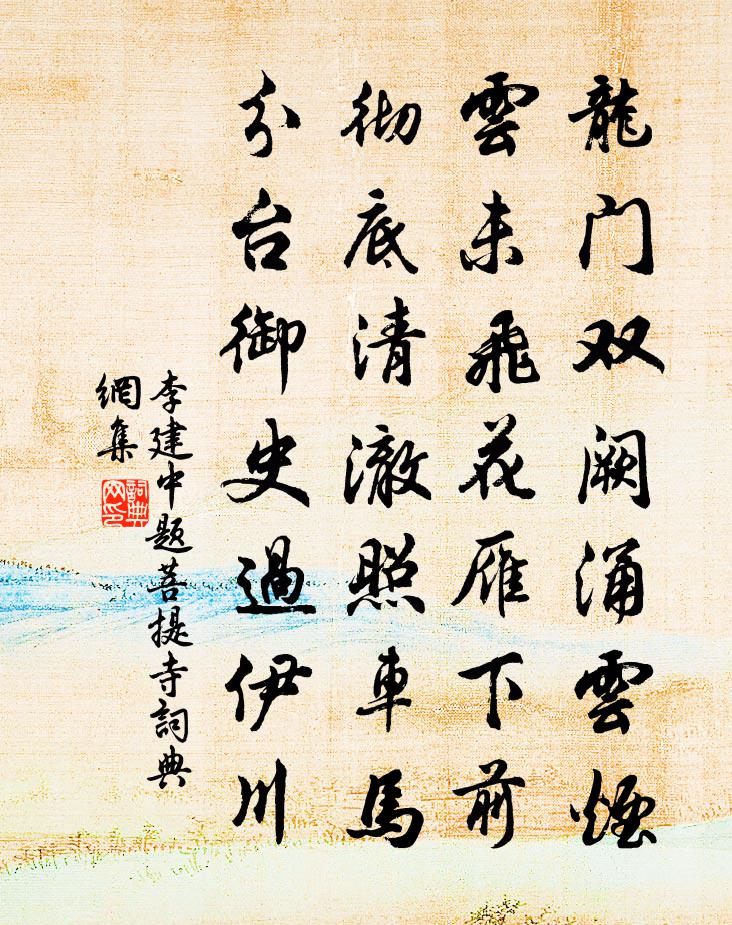 龍门双阙涌雲煙
雲未飛花雁下前
彻底清澈照車馬
分台御史過伊川
李建中题菩提寺詞典
網集
詞典
网印